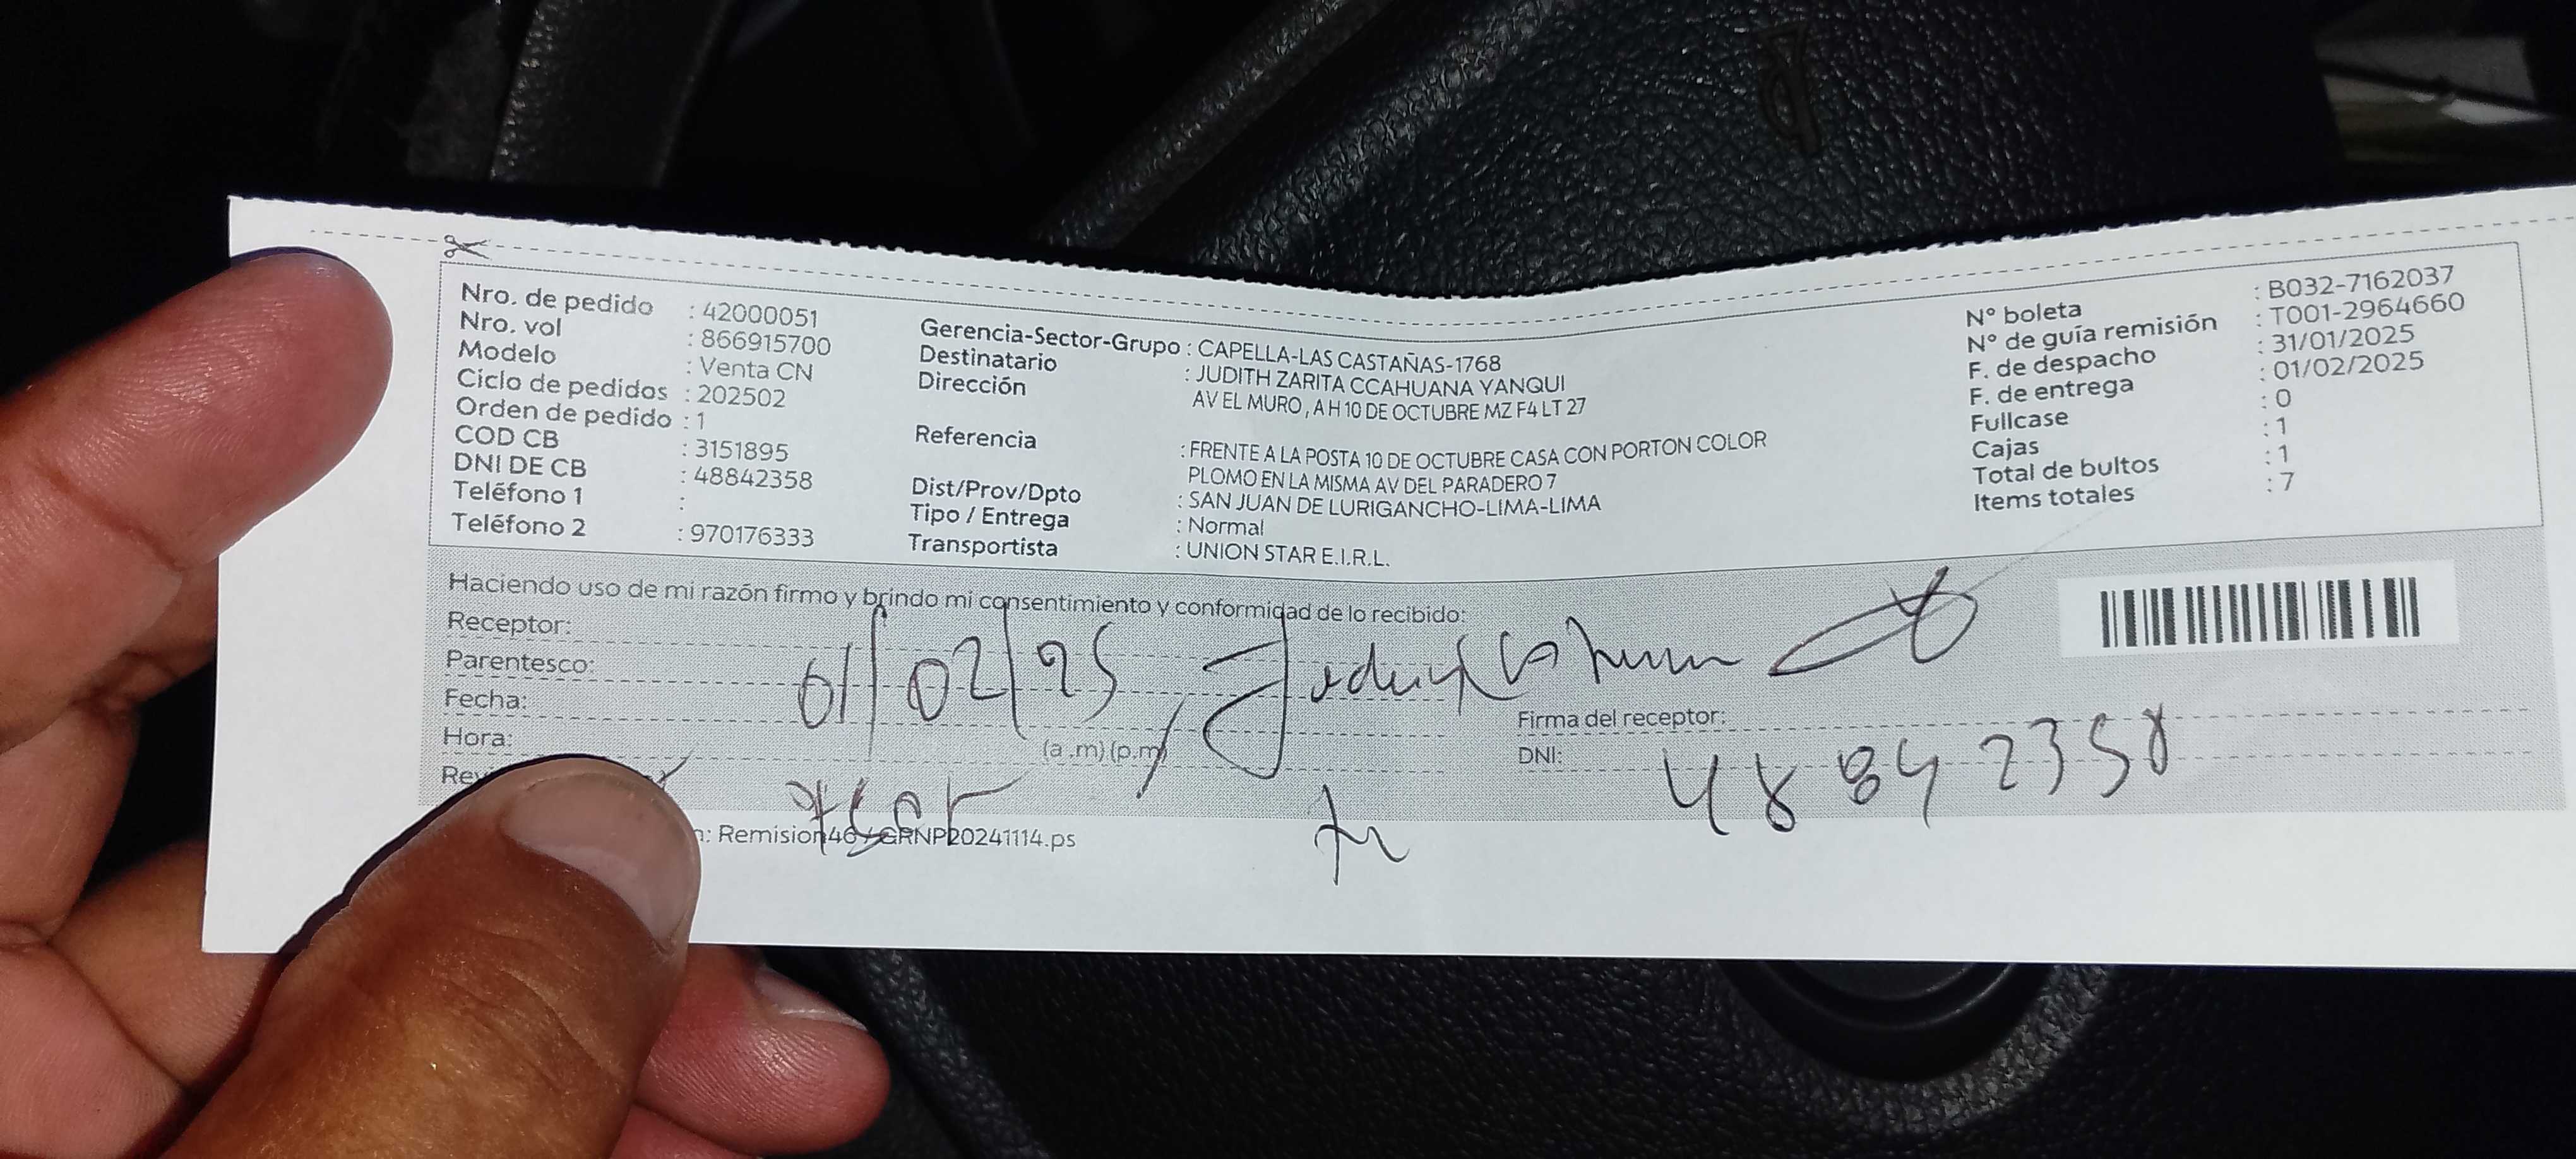 Nro. de pedido : 42000051
Nro. vol : 866915700
Modelo : Venta CN
Ciclo de pedidos : 202502
Orden de pedido : 1
COD CB : 3151895
DNI DE CB : 48842358
Teléfono 1 :
Teléfono 2 : 970176333
Gerencia-Sector-Grupo : CAPELLA-LAS CASTAÑAS-1768
Destinatario : JUDITH ZARITA CCAHUANA YANQUI
Dirección AV EL MURO , A H 10 DE OCTUBRE MZ F4 LT 27
Referencia : FRENTE A LA POSTA 10 DE OCTUBRE CASA CON PORTON COLOR
PLOMO EN LA MISMA AV DEL PARADERO 7
Dist/Prov/Dpto : SAN JUAN DE LURIGANCHO-LIMA-LIMA
Tipo / Entrega : Normal
Transportista : UNION STAR E.I.R.L.
N° boleta : B032-7162037
N° de guía remisión : T001-2964660
F. de despacho : 31/01/2025
F. de entrega : 01/02/2025
Fullcase : 0
Cajas : 1
Total de bultos : 1
Items totales : 7
Haciendo uso de mi razón firmo y brindo mi consentimiento y conformidad de lo recibido:
Receptor:
Parentesco:
Fecha: 01/02/25
Hora: (a .m) (p.m)
Firma del receptor:
DNI: 48842358
: Remision46 / GRNP20241114.ps